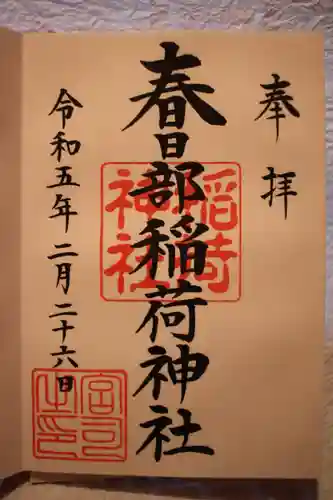 奉拝
春日部稲荷神社
令和五年二月二十六日
稲荷
神社
宮司
之印